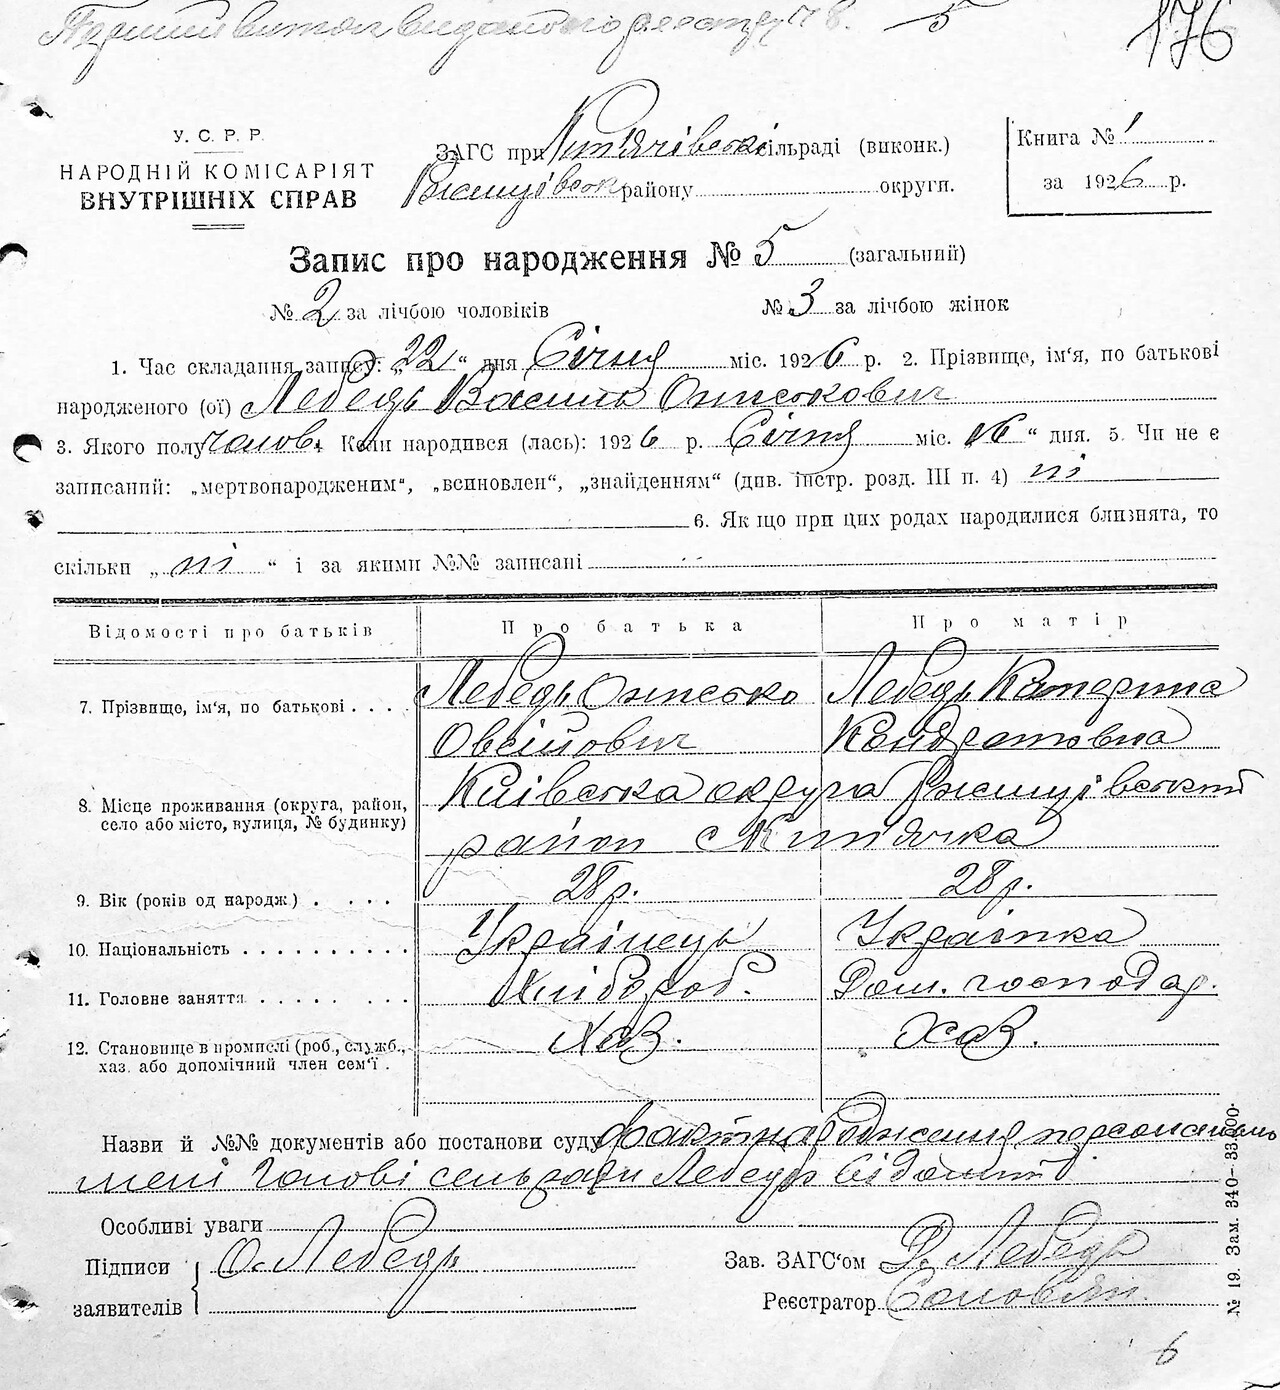 176
У. С. Р. Р.
НАРОДНІЙ КОМІСАРІЯТ
ВНУТРІШНІХ СПРАВ
ЗАГС при сільраді (виконк.)
району округи.
Книга № 1
за 1926 р.
Запис про народження № 5 (загальний)
№ 2 за лічбою чоловіків № 3 за лічбою жінок
1. Час складання запису: „22“ дня Січня міс. 1926 р. 2. Прізвище, ім‘я, по батькові
народженого (ої) Лебедь Василь Ониськович
3. Якого полу чолов. Коли народився (лась): 1926 р. Січня міс. 16 “ дня. 5. Чи не є
записаний: „мертвонародженим“, „всиновлен“, „знайденням“ (див. інстр. розд. III п. 4) ні
6. Як що при цих родах народилися близнята, то
скільки „ ні “ і за якими №№ записані
Відомості про батьків Про батька Про матір
7. Прізвище, ім‘я, по батькові . . . . Лебедь Онисько Лебедь Катерина
Овсійович Кондратовна
8. Місце проживання (округа, район, село або місто, вулиця, № будинку) Київська округа Ржищівський
район с
9. Вік (років од народж.) . . . . 28 р. 28 р.
10. Національність . . . . . . . . . . Українець Українка
11. Головне заняття . . . . . . . . . Хлібороб. Дом. господар.
12. Становище в промислі (роб., служб., хаз. або допомічний член сем‘ї . Хаз. Хаз.
Назви й №№ документів або постанови суду факт народження персонально
мені голові сельради Лебедь відомий
Особливі уваги
Підписи заявителів О. Лебедь
Зав. ЗАГС‘ом Лебедь
Реєстратор
№ 19. Зам. 340–33.000.
6